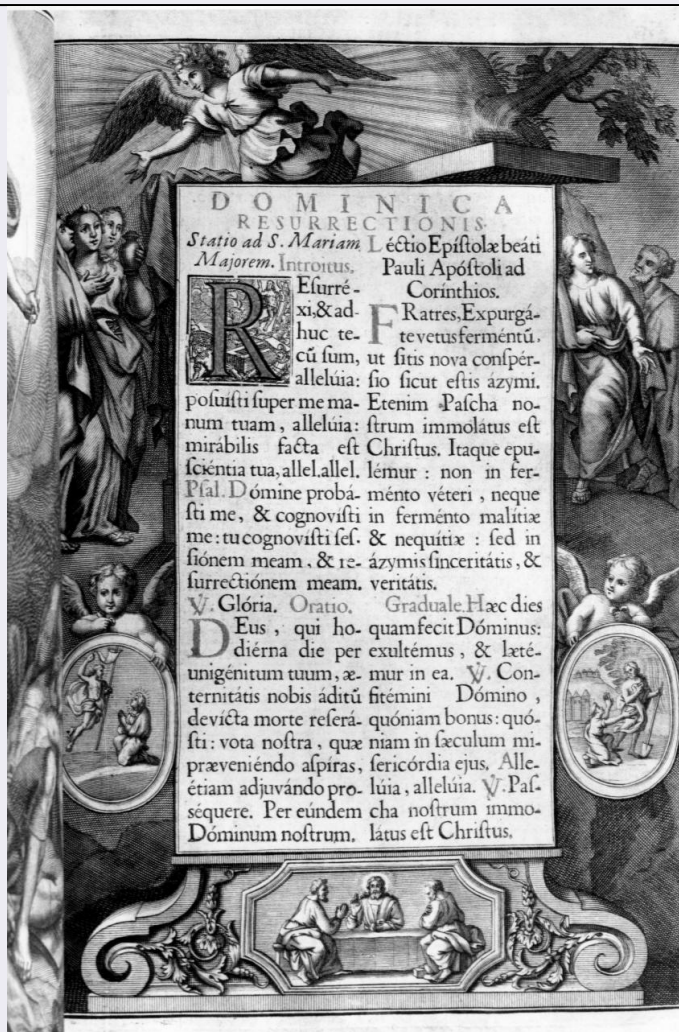 DOMINICA
RESURRECTIONIS.
Statio ad S. Mariam
Majorem. Introitus.
REsurré-
xi, & ad-
huc te-
cū sum,
allelúia:
posuisti super me ma-
num tuam, allelúia:
mirábilis facta est
sciéntia tua, allel. allel.
Psal. Dómine probá-
sti me, & cognovisti
me: tu cognovisti ses-
siónem meam, & re-
surrectiónem meam.
℣. Glória. Oratio.
DEus, qui ho-
diérna die per
unigénitum tuum, æ-
ternitátis nobis áditū
devícta morte reserá-
sti: vota nostra, quæ
præveniéndo aspíras,
étiam adjuvándo pro-
séquere. Per eúndem
Dóminum nostrum.
Léctio Epístolæ beáti
Pauli Apóstoli ad
Corínthios.
FRatres, Expurgá-
te vetus ferméntū,
ut sitis nova conspér-
sio sicut estis ázymi.
Etenim Pascha no-
strum immolátus est
Christus. Itaque epu-
lémur: non in fer-
ménto véteri, neque
in ferménto malítiæ
& nequítiæ: sed in
ázymis sinceritátis, &
veritátis.
Graduale. Hæc dies
quam fecit Dóminus:
exultémus, & læté-
mur in ea. ℣. Con-
fitémini Dómino,
quóniam bonus: quó-
niam in sæculum mi-
sericórdia ejus. Alle-
lúia, allelúia. ℣. Pas-
cha nostrum immo-
látus est Christus.